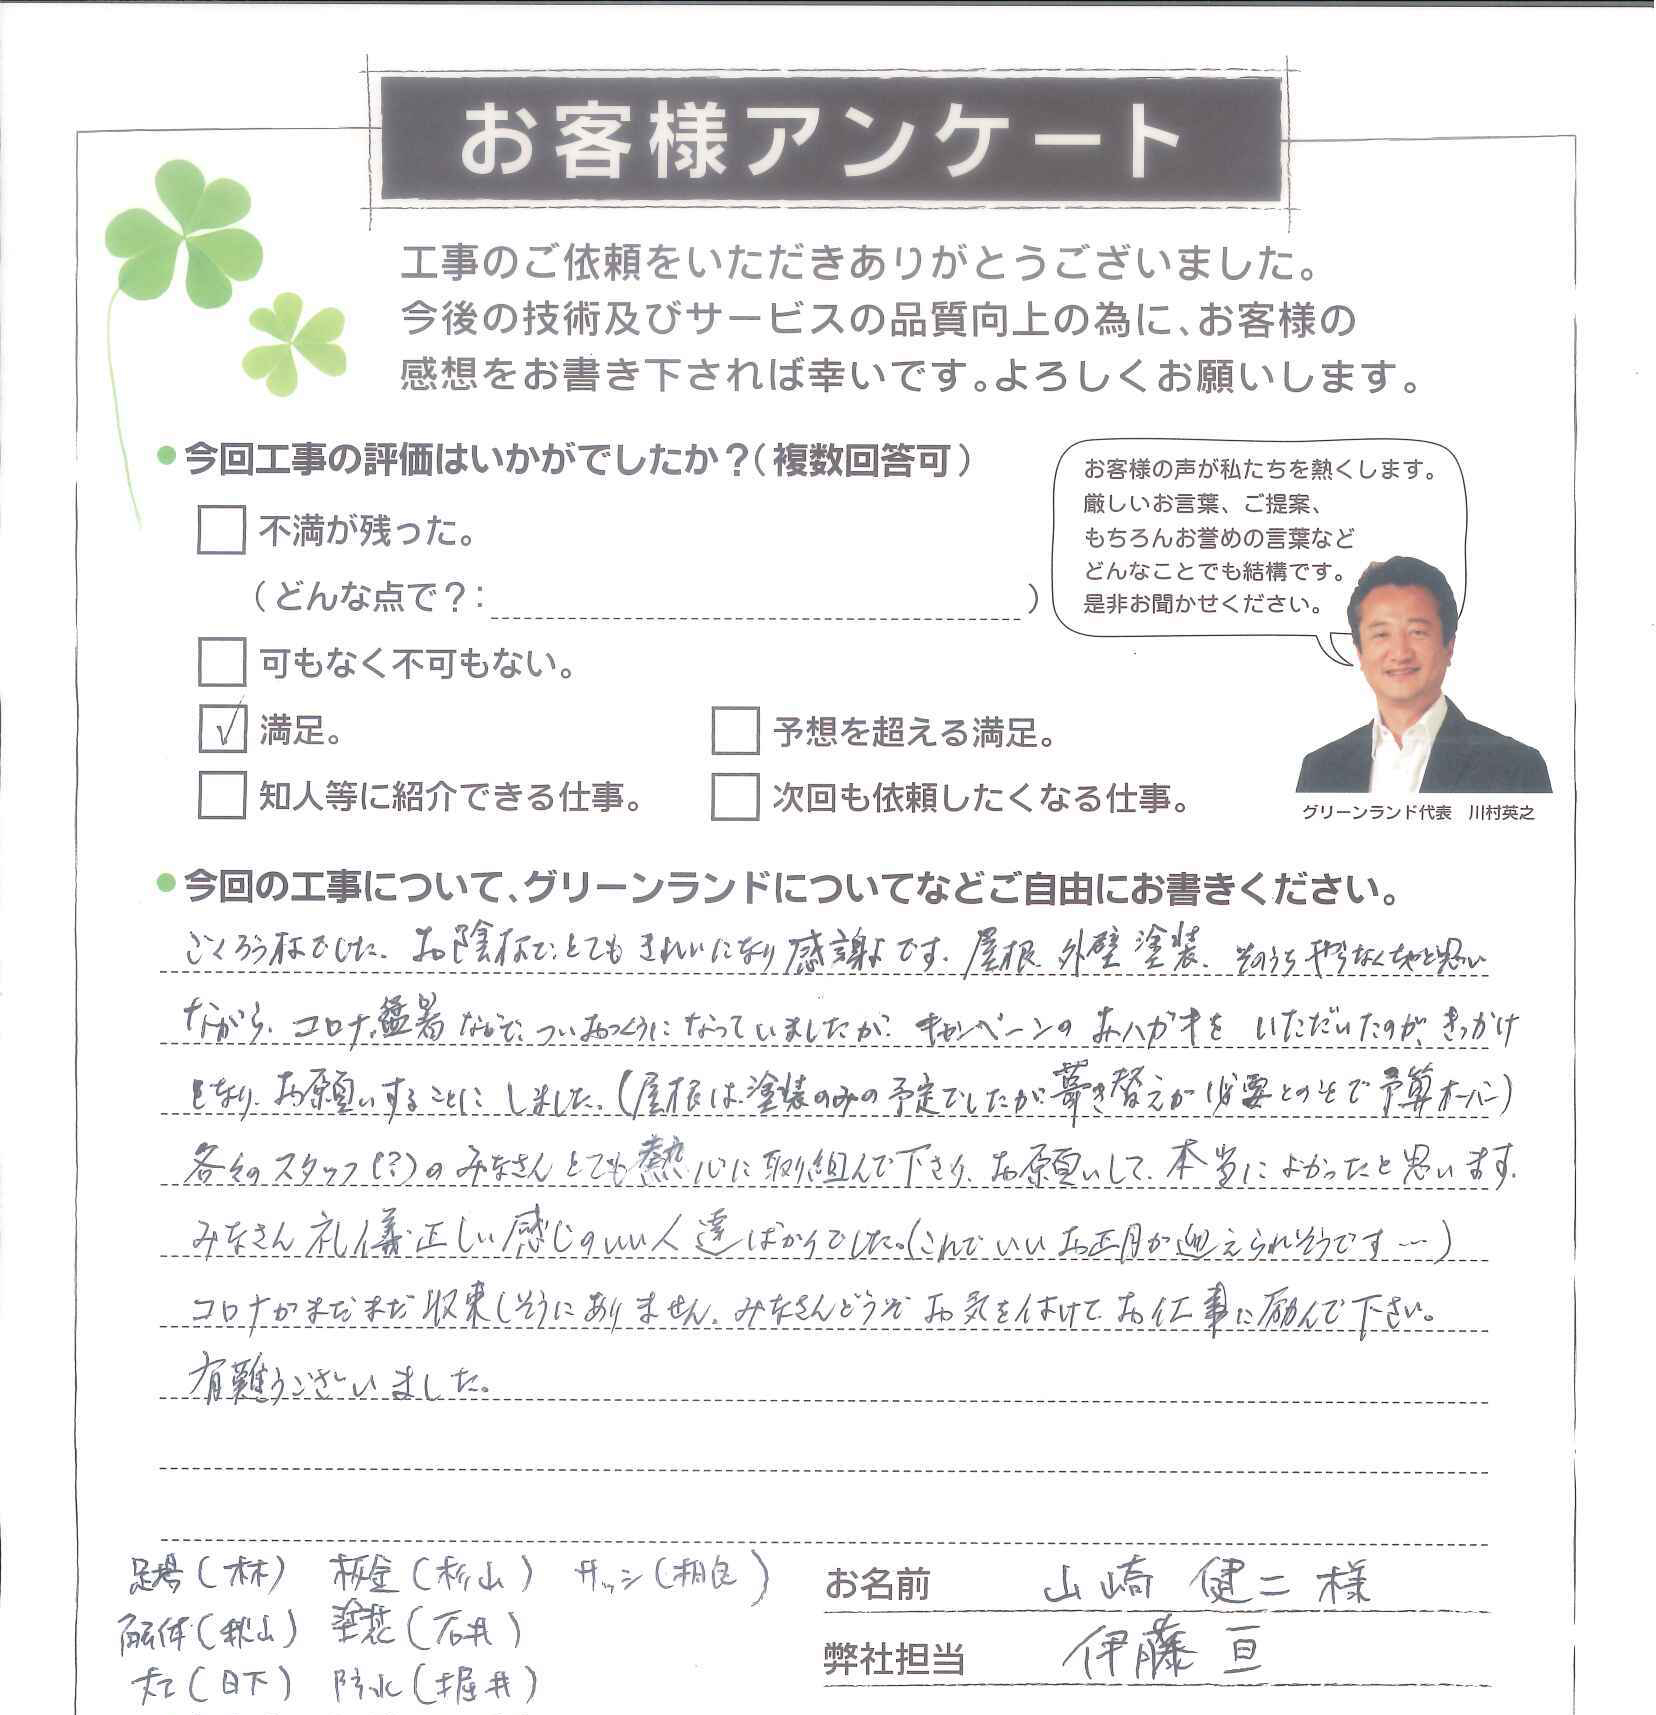 お客様アンケート
工事のご依頼をいただきありがとうございました。
今後の技術及びサービスの品質向上の為に、お客様の
感想をお書き下されば幸いです。よろしくお願いします。
今回工事の評価はいかがでしたか？（複数回答可）
不満が残った。
（どんな点で？：）
可もなく不可もない。
満足。
予想を超える満足。
知人等に紹介できる仕事。
次回も依頼したくなる仕事。
お客様の声が私たちを熱くします。
厳しいお言葉、ご提案、
もちろんお誉めの言葉など
どんなことでも結構です。
是非お聞かせください。
グリーンランド代表 川村英之
今回の工事について、グリーンランドについてなどご自由にお書きください。
ごくろう様でした。お陰様で、とてもきれいになり感謝です。屋根、外壁塗装、そのうちやらなくちゃと思い
ながら、コロナ、猛暑などで、ついおっくうになっていましたが、キャンペーンのおハガキをいただいたのが、きっかけ
となり、お願いすることにしました。（屋根は塗装のみの予定でしたが葺き替えが必要とのことで予算オーバー）
各々のスタッフ（？）のみなさんとても熱心に取り組んで下さり、お願いして、本当によかったと思います。
みなさん礼儀正しい感じのいい人達ばかりでした。（これでいいお正月が迎えられそうです…）
コロナがまだまだ収束しそうにありません。みなさんどうぞお気を付けてお仕事に励んで下さい。
有難うございました。
足場（林） 板金（杉山） サッシ（相良）
解体（秋山） 塗装（石井）
大工（日下） 防水（堀井）
お名前 山崎 健二 様
弊社担当 伊藤 亘